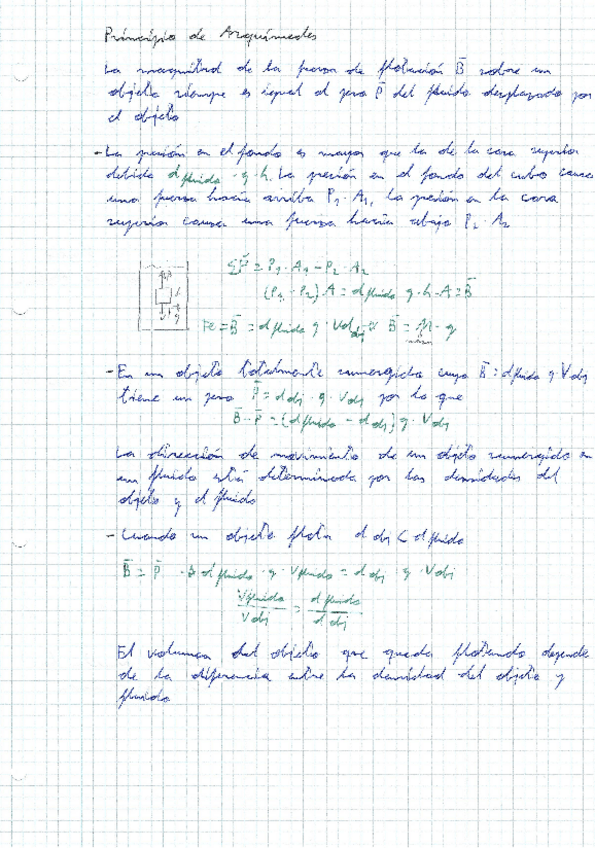 Principio de Arquímedes
La magnitud de la fuerza de flotación B̄ sobre un
objeto siempre es igual al peso P̄ del fluido desplazado por
el objeto
- La presión en el fondo es mayor que la de la cara superior
debida d fluido · g · h. La presión en el fondo del cubo causa
una fuerza hacia arriba P1 · A1, la presión en la cara
superior causa una fuerza hacia abajo P2 · A2
ΣF̄ = P1 · A1 - P2 · A2
(P1 - P2) · A = d fluido g · h · A = B̄
Fe = B̄ = d fluido g · Vobj B̄ = M · g
- En un objeto totalmente sumergido cuya B̄ = d fluido g Vobj
tiene un peso P̄ = d obj · g · Vobj por lo que
B̄ - P̄ = (d fluido - d obj) g · Vobj
La dirección de movimiento de un objeto sumergido en
un fluido está determinada por las densidades del
objeto y el fluido
- Cuando un objeto flota d obj < d fluido
B̄ = P̄ → d fluido · g · Vfluido = d obj g · Vobj
Vfluido / Vobj = d fluido / d obj
El volumen del objeto que queda flotando depende
de la diferencia entre la densidad del objeto y
fluido